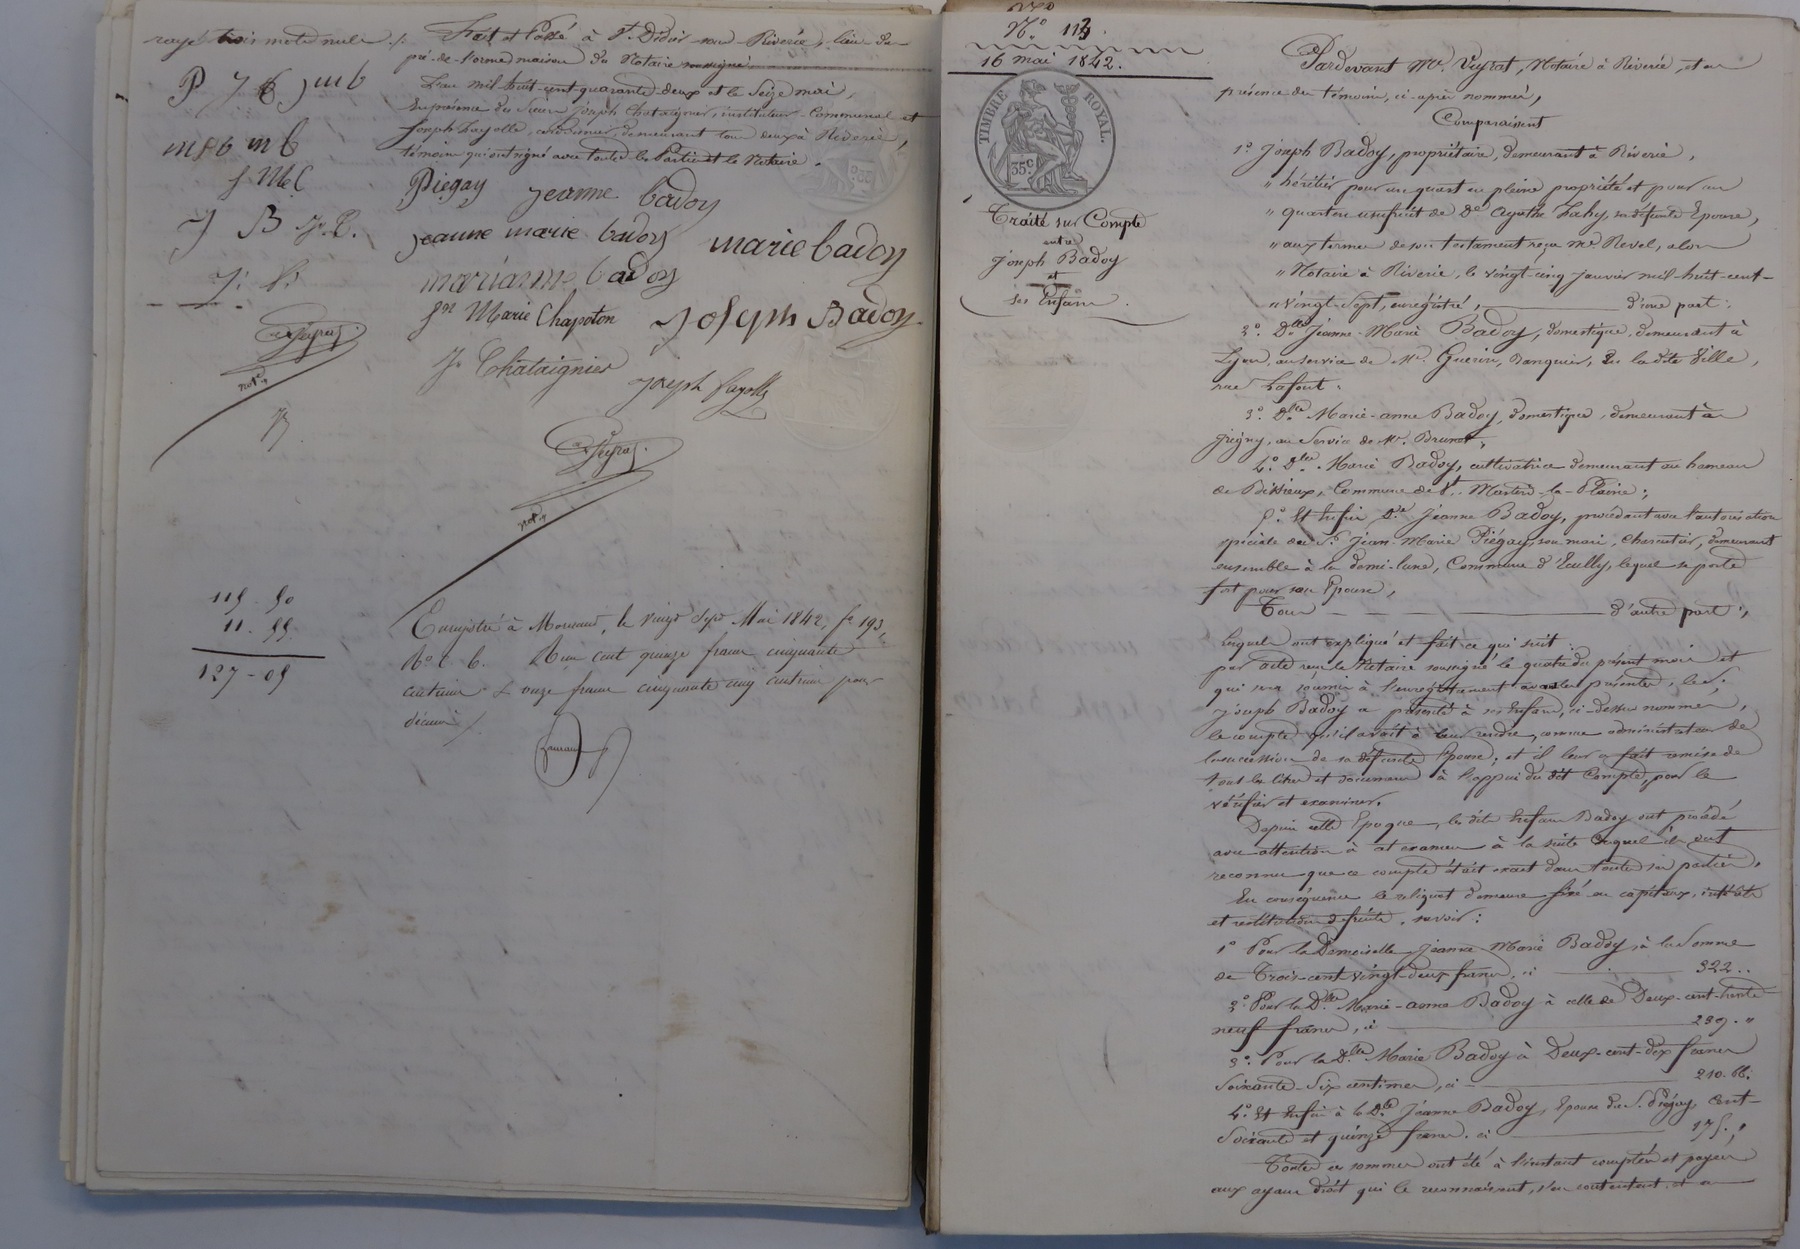 rayé trois mots nuls ./. Fait et Passé à St. Didier sous Riverie, lieu du
pré-de-l'orme maison du Notaire soussigné
L'an mil-huit-cent-quarante deux et le Seize mai,
En présence des Sieurs Joseph Chataignier, instituteur Communal et
Joseph Fayolle, cordonnier, demeurant tous deux à Riverie,
témoins qui ont signé avec toutes les Parties et le Notaire.
P J B jmb
mab mb
J B
Piegay Jeanne badoy
jeanne marie badoy marie badoy
marianne badoy
jn Marie Chapoton Joseph Badoy
Jh Chataignier
Joseph fayolle
Veyrat
notre
Veyrat
notre
115 - 50
11 - 55
127 - 05
Enregistré à Mornant, le vingt sept Mai 1842, fo 193,
Ro c. 6. Reçu cent quinze francs cinquante
centimes & onze francs cinquante cinq centimes pour
décime /.
No. 113.
16 mai 1842.
TIMBRE ROYAL.
35 c.
Traité sur Compte
entre
Joseph Badoy
et
ses Enfans.
Pardevant Me. Veyrat, Notaire à Riverie, et en
présence des témoins, ci-après nommés,
Comparaissent
1o. Joseph Badoy, propriétaire, demeurant à Riverie,
" héritier pour un quart en pleine propriété et pour un
" quart en usufruit de De Agathe Zahy, sa défunte Epouse,
" aux termes de son testament reçu Me Revel, alors
" Notaire à Riverie, le vingt-cinq Janvier mil-huit-cent-
" vingt-sept, enregistré, d'une part :
2o. Dlle Jeanne-Marie Badoy, domestique, demeurant à
Lyon, au service de Mr. Guerin, Banquier, en la dite Ville,
rue Lafont ;
3o. Dlle Marie-anne Badoy, domestique, demeurant à
Grigny, au Service de Mr. Brunat,
4o. Dlle. Marie Badoy, cultivatrice demeurant au hameau
de Bissieux, Commune de St. Martin-la-Plaine ;
5o. Et Enfin De. Jeanne Badoy, procédant sous l'autorisation
spéciale de Sr. Jean-Marie Piégay, son mari, Charcutier, demeurant
ensemble à la demi-lune, Commune d'Ecully, lequel se porte
fort pour son Epouse,
Tous d'autre part ;
Lesquels ont expliqué et fait ce qui suit :
par acte reçu le Notaire soussigné le quatre du présent mois et
qui sera soumis à l'enregistrement avant les présentes, le S.
Joseph Badoy a présenté à ses Enfans, ci-dessus nommés,
le compte qu'il avait à leur rendre, comme administrateur de
la succession de sa défunte Epouse ; et il leur a fait remise de
tous les titres et documens à l'appui du dit Compte, pour le
vérifier et examiner.
Depuis cette Epoque, les dits Enfans Badoy ont procédé
avec attention à cet examen à la suite duquel ils ont
reconnu que ce compte était exact dans toutes ses parties,
En conséquence le reliquat demeure fixé en capitaux, intérêts
et restitution de fruits, savoir :
1o Pour la Demoiselle Jeanne Marie Badoy, à la Somme
de Trois-cent vingt-deux francs, ci 322..
2o. Pour la Dlle. Marie-anne Badoy à celle de Deux-cent-trente
neuf francs, ci 239. "
3o. Pour la Dlle Marie Badoy à Deux-cent-dix francs
Soixante-Six centimes, ci 210. 66.
4o. Et Enfin à la De Jeanne Badoy, Epouse du S. Piégay, Cent-
Soixante et quinze francs. ci 175. "
Toutes ces sommes ont été à l'instant comptées et payées
aux ayans droit qui le reconnaissent, s'en contentent et en